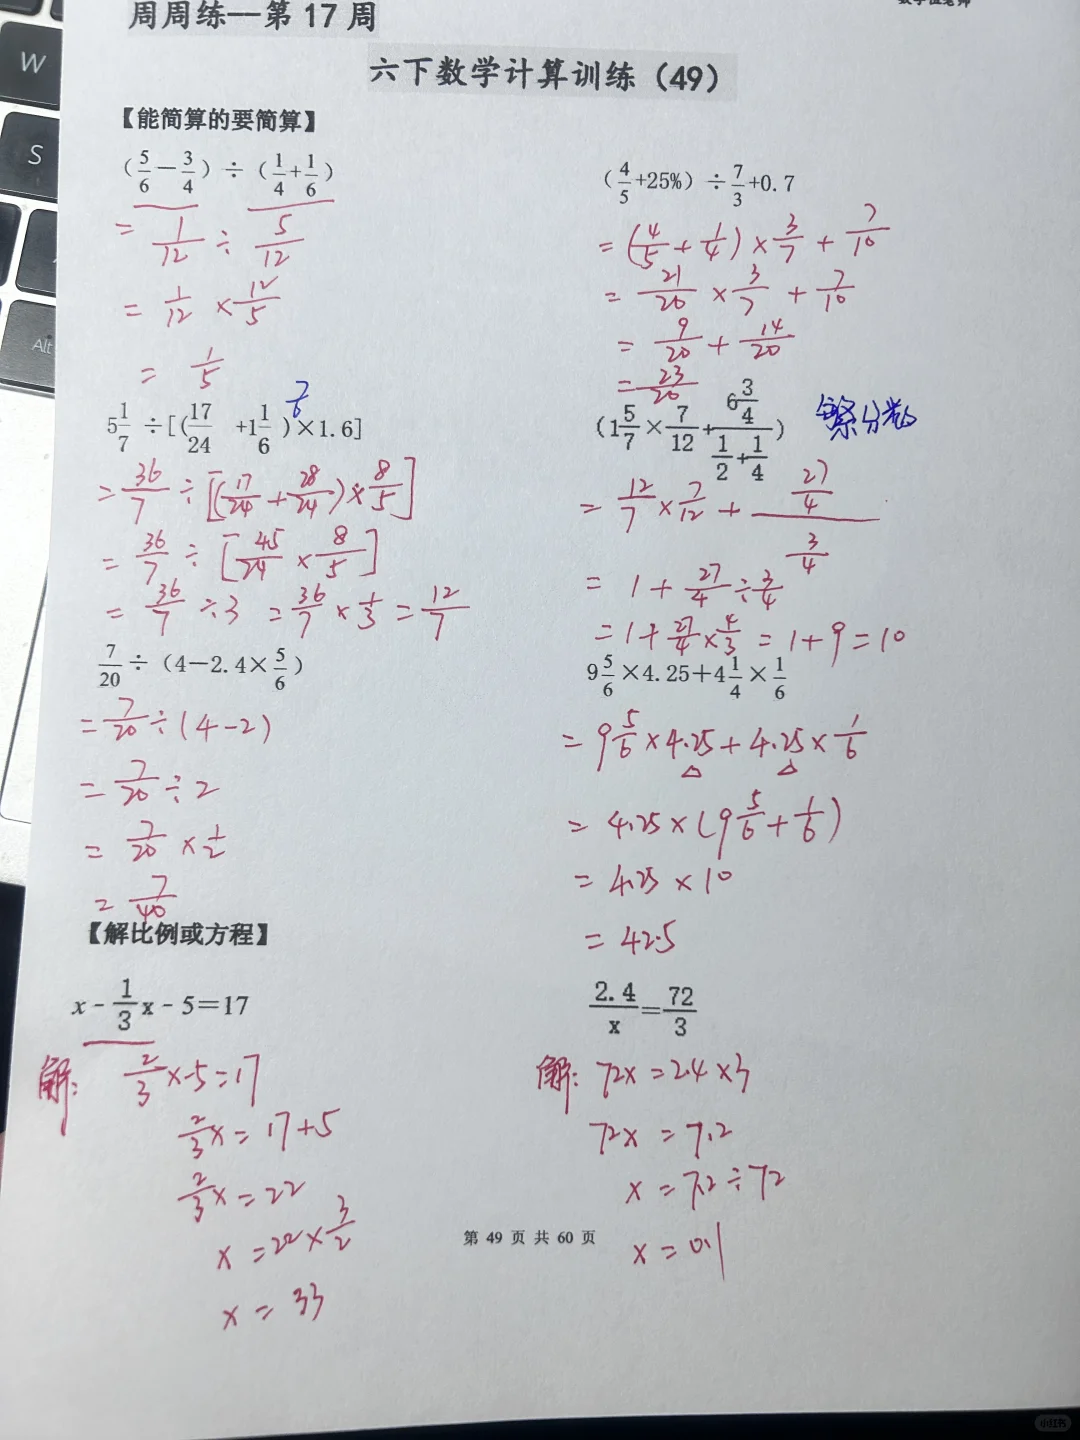 周周练—第 17 周
六下数学计算训练（49）
【能简算的要简算】
(5/6－3/4) ÷ (1/4+1/6)
= 1/12 ÷ 5/12
= 1/12 × 12/5
= 1/5
(4/5+25%) ÷ 7/3+0.7
= (4/5 + 1/4) × 3/7 + 7/10
= 21/20 × 3/7 + 7/10
= 9/20 + 14/20
= 23/20
7/6
5 1/7 ÷[(17/24 +1 1/6)×1.6]
= 36/7 ÷ [(17/24 + 28/24) × 8/5]
= 36/7 ÷ [45/24 × 8/5]
= 36/7 ÷ 3 = 36/7 × 1/3 = 12/7
(1 5/7 × 7/12 + (6 3/4)/(1/2+1/4))
繁分数
= 12/7 × 7/12 + (27/4)/(3/4)
= 1 + 27/4 ÷ 3/4
= 1 + 27/4 × 4/3 = 1 + 9 = 10
7/20 ÷ (4－2.4× 5/6)
= 7/20 ÷ (4-2)
= 7/20 ÷ 2
= 7/20 × 1/2
= 7/40
9 5/6 ×4.25+4 1/4 × 1/6
= 9 5/6 × 4.25 + 4.25 × 1/6
= 4.25 × (9 5/6 + 1/6)
= 4.25 × 10
= 42.5
【解比例或方程】
x - 1/3 x - 5＝17
解: 2/3 x-5=17
2/3 x = 17+5
2/3 x = 22
x = 22 × 3/2
x = 33
2.4/x = 72/3
解: 72x = 2.4 × 3
72x = 7.2
x = 7.2 ÷ 72
x = 0.1
第 49 页 共 60 页
小红书